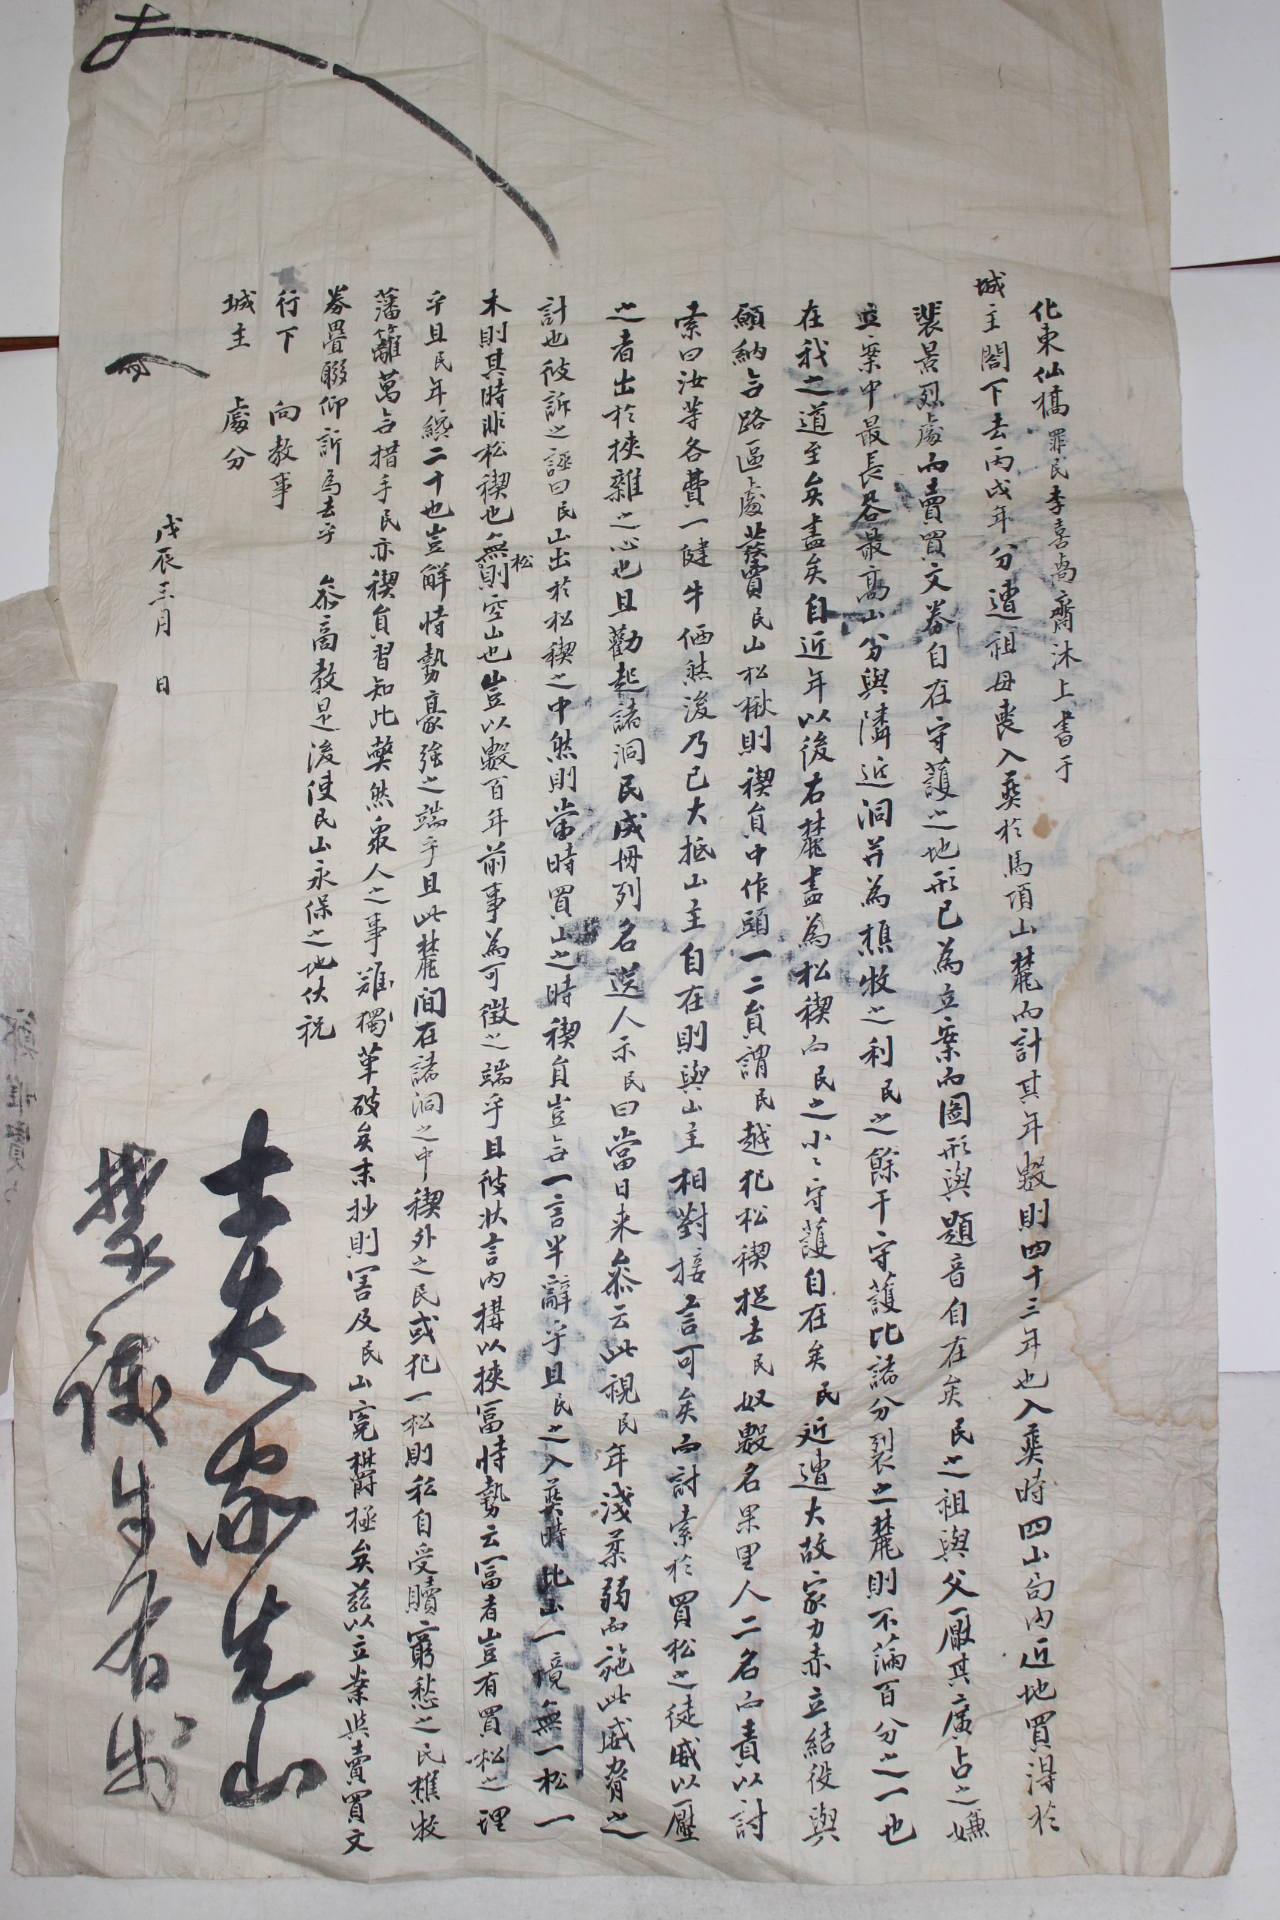 化東仙橋罪民李喜卨齋沐上書于
城主閤下去丙戌年分遭祖母喪入葬於馬項山麓而計其年數則四十三年也入葬時四山局內近地買得於
裴景烈處而賣買文券自在守護之地形已爲立案而圖形與題音自在矣民之祖與父厭其廣占之嫌
立案中最長谷最高山分與隣近洞幷爲樵牧之利民之餘干守護比諸分裂之麓則不滿百分之一也
在我之道至矣盡矣自近年以後右麓盡爲松稧而民之小〻守護自在矣民近遭大故家力赤立結役與
願納各路區處 賣民山松楸則稧員中作頭一二員謂民越犯松稧捉去民奴數名果里人二名而責以討
索曰汝等各費一健牛価然後乃已大抵山主自在則與山主相對接言可矣而討索於買松之徒威以壓
之者出於挾雜之心也且勸起諸洞民成冊列名送人示民曰當日来叅云此視民年淺柔弱而施此威脅之
計也彼訴之誣曰民山出於松稧之中然則當時買山之時稧員豈無一言半辭乎且民之入葬時此山一境無一松一
木則其時非松稧也無松則空山也豈以數百年前事爲可徵之端乎且彼狀言內搆以挾富恃勢云富者豈有買松之理
乎且民年纔二十也豈解恃勢豪强之端乎且此麓間在諸洞之中稧外之民或犯一松則私自受贖窮愁之民樵牧
藩籬萬無措手民亦稧員習知此弊然衆人之事難獨革破矣末抄則害及民山寃欝極矣玆以立案與賣買文
券疊聯仰訴爲去乎 叅商教是後使民山永保之地伏祝
行下向教事
城主 處分
戊辰三月 日
士夫家先山
禁護生者